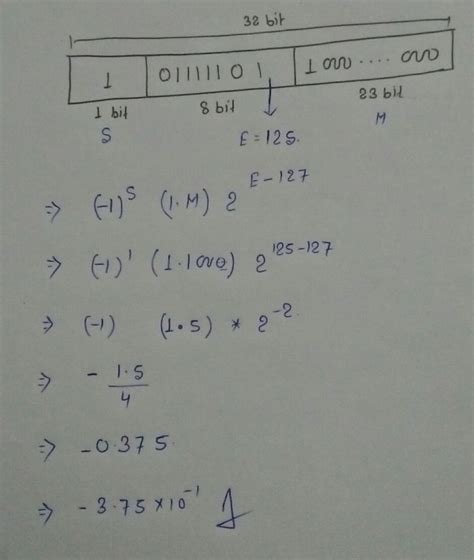 32 bit
1 01111101 1000....000
1 bit 8 bit 23 bit
S E=125. M
⇒ (-1)^S (1.M) 2^E-127
⇒ (-1)^1 (1.1000) 2^125-127
⇒ (-1) (1.5) * 2^-2.
⇒ - 1.5/4
⇒ -0.375.
⇒ -3.75×10^-1